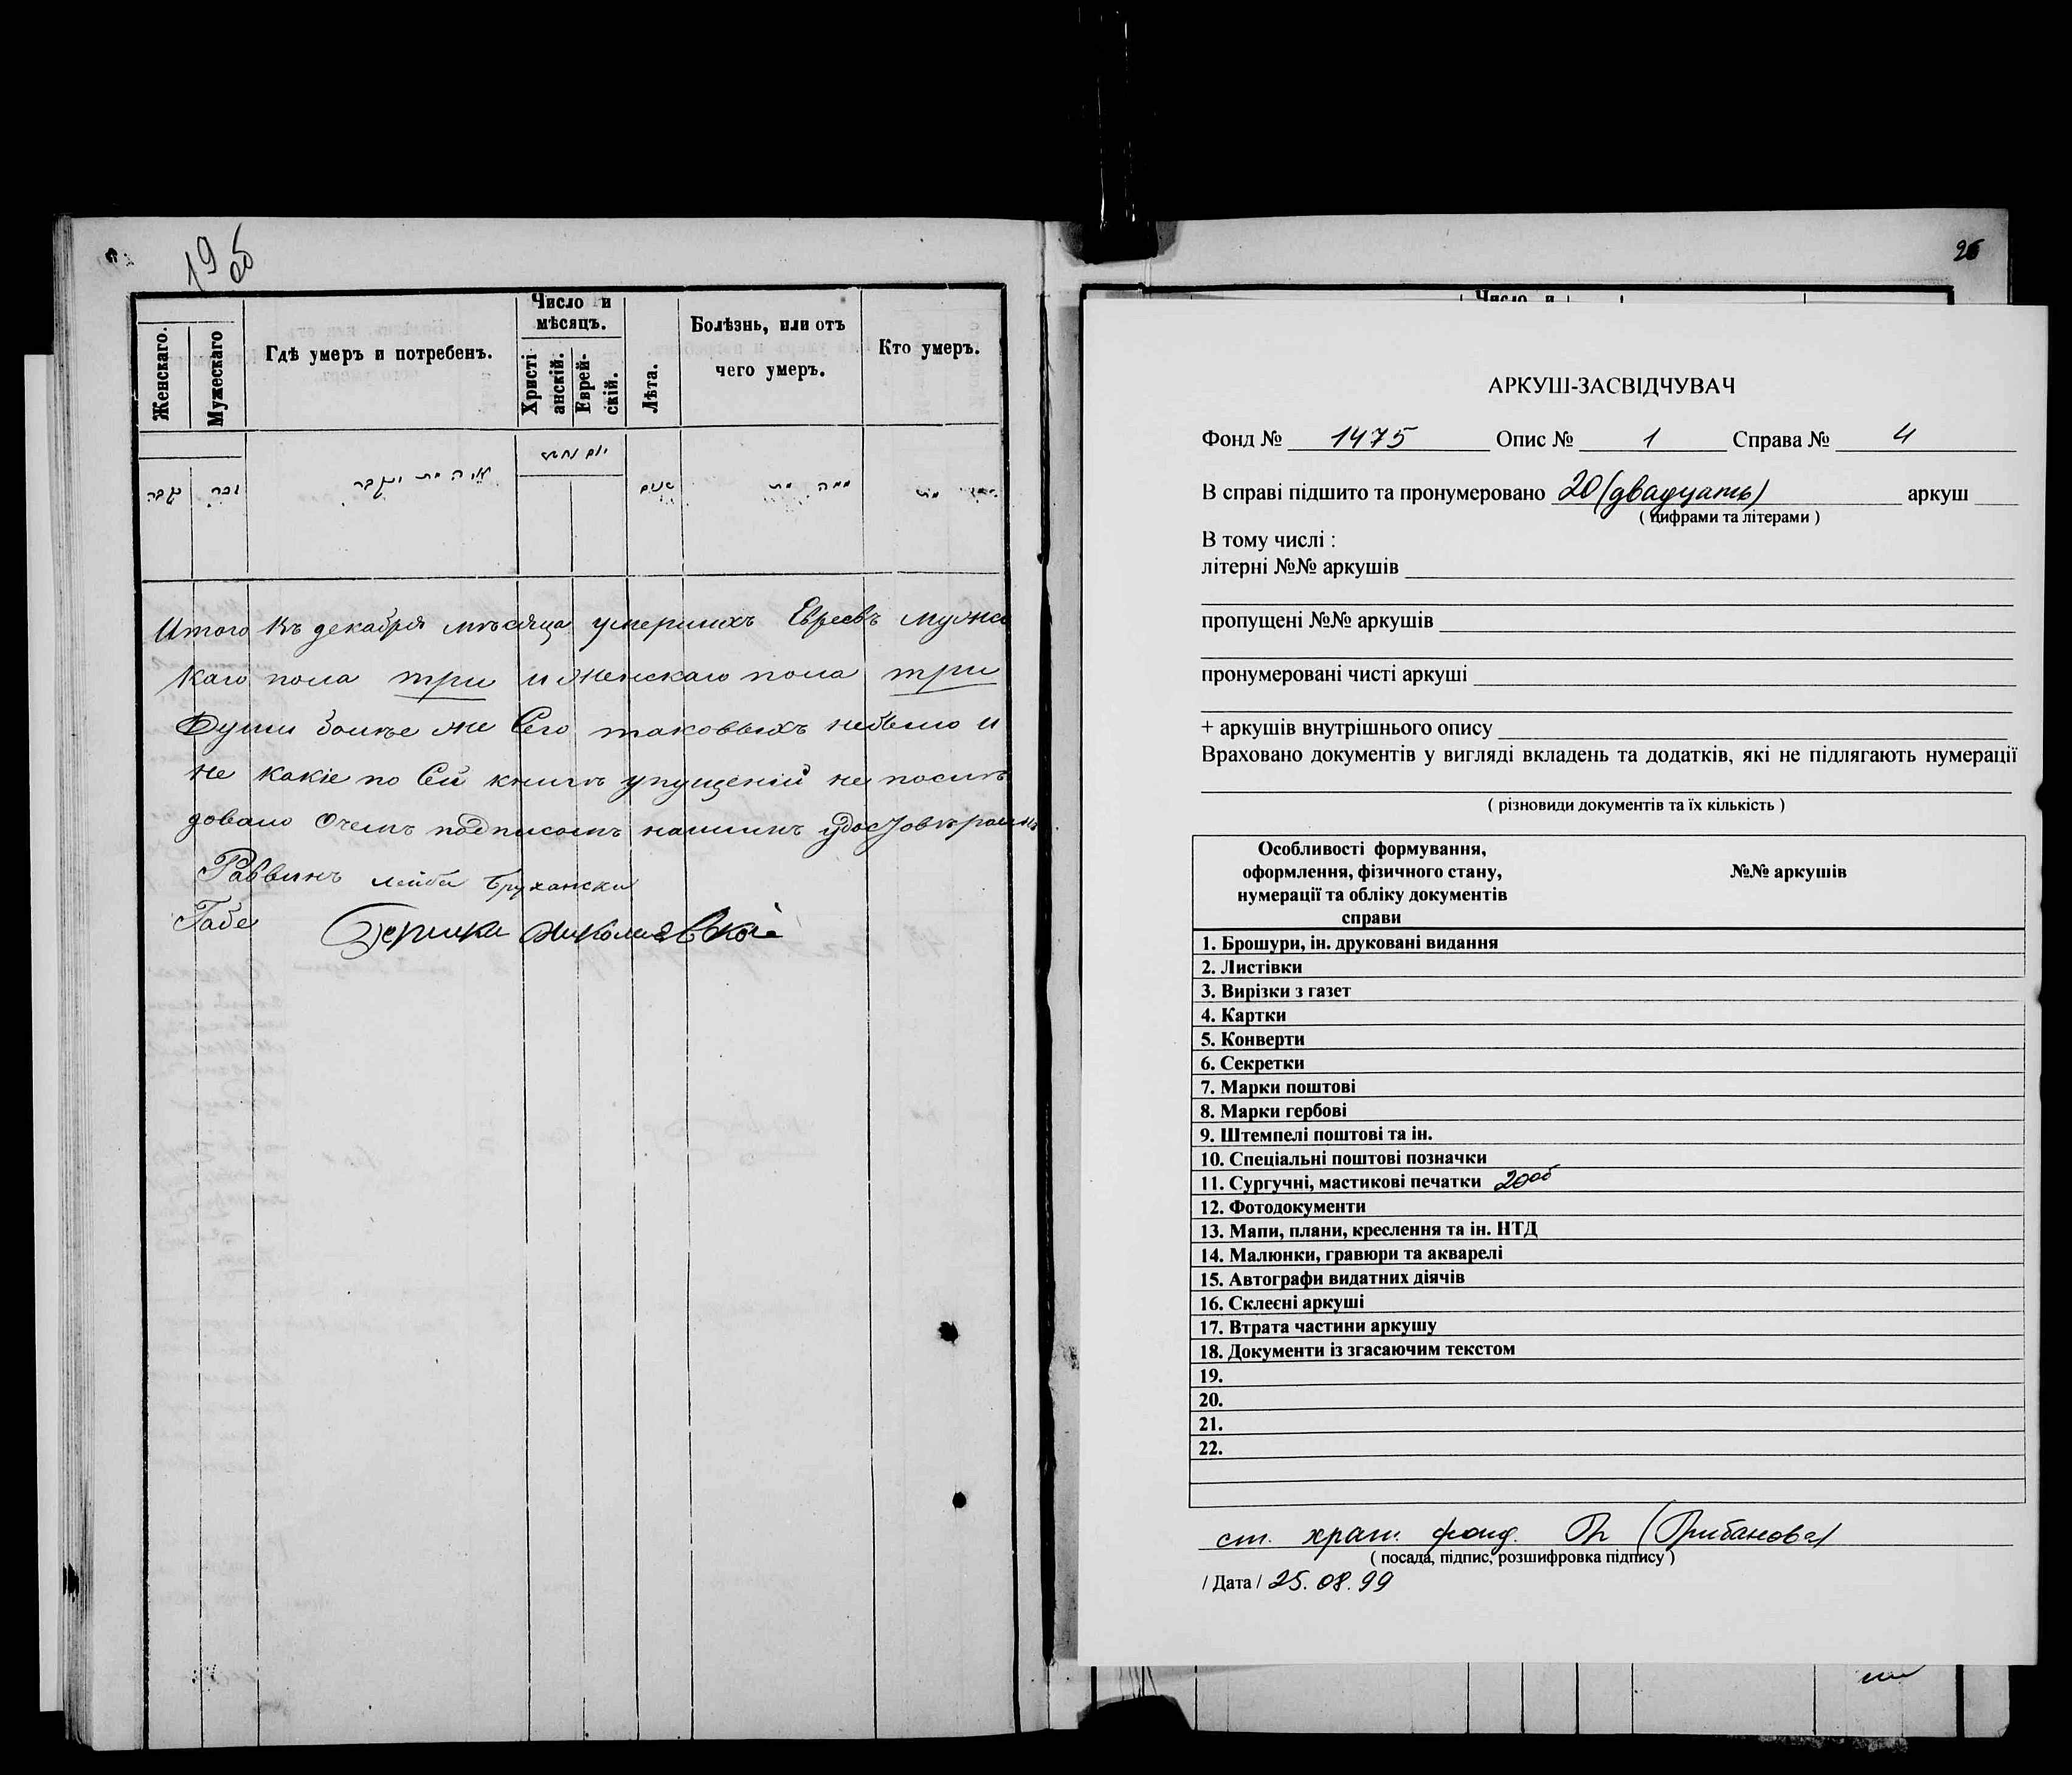 19об
Женскаго.
Мужескаго
Гдѣ умеръ и погребенъ.
Число и
мѣсяцъ.
Христі-
анскій.
Еврей-
скій.
Лѣта.
Болѣзнь, или отъ
чего умеръ.
Кто умеръ.
Итого въ декабрѣ мѣсяца умершихъ Евреевъ мужс
каго пола три и женскаго пола три
Души болѣе же Сего таковыхъ небыло и
не какіе по Сей книгѣ упущеній не послѣ
довало Очемъ подписомъ нашимъ удостовѣраемъ
Раввинъ Лейба Брухански
Габе
Гершка Николаевской
Число и
АРКУШ-ЗАСВІДЧУВАЧ
Фонд № 1475 Опис № 1 Справа № 4
В справі підшито та пронумеровано 20 (двадцать) аркуш
( цифрами та літерами )
В тому числі :
літерні №№ аркушів
пропущені №№ аркушів
пронумеровані чисті аркуші
+ аркушів внутрішнього опису
Враховано документів у вигляді вкладень та додатків, які не підлягають нумерації
( різновиди документів та їх кількість )
Особливості формування,
оформлення, фізичного стану,
нумерації та обліку документів
справи
№№ аркушів
1. Брошури, ін. друковані видання
2. Листівки
3. Вирізки з газет
4. Картки
5. Конверти
6. Секретки
7. Марки поштові
8. Марки гербові
9. Штемпелі поштові та ін.
10. Спеціальні поштові позначки
11. Сургучні, мастикові печатки 20об
12. Фотодокументи
13. Мапи, плани, креслення та ін. НТД
14. Малюнки, гравюри та акварелі
15. Автографи видатних діячів
16. Склеєні аркуші
17. Втрата частини аркушу
18. Документи із згасаючим текстом
19.
20.
21.
22.
ст. хран. фонд. (Грибанова)
( посада, підпис, розшифровка підпису )
/ Дата / 25. 08. 99